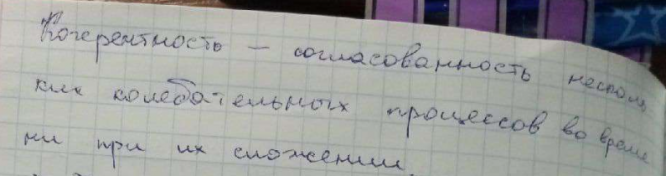 Когерентность – согласованность несколь
ких колебательных процессов во време
ни при их сложении.